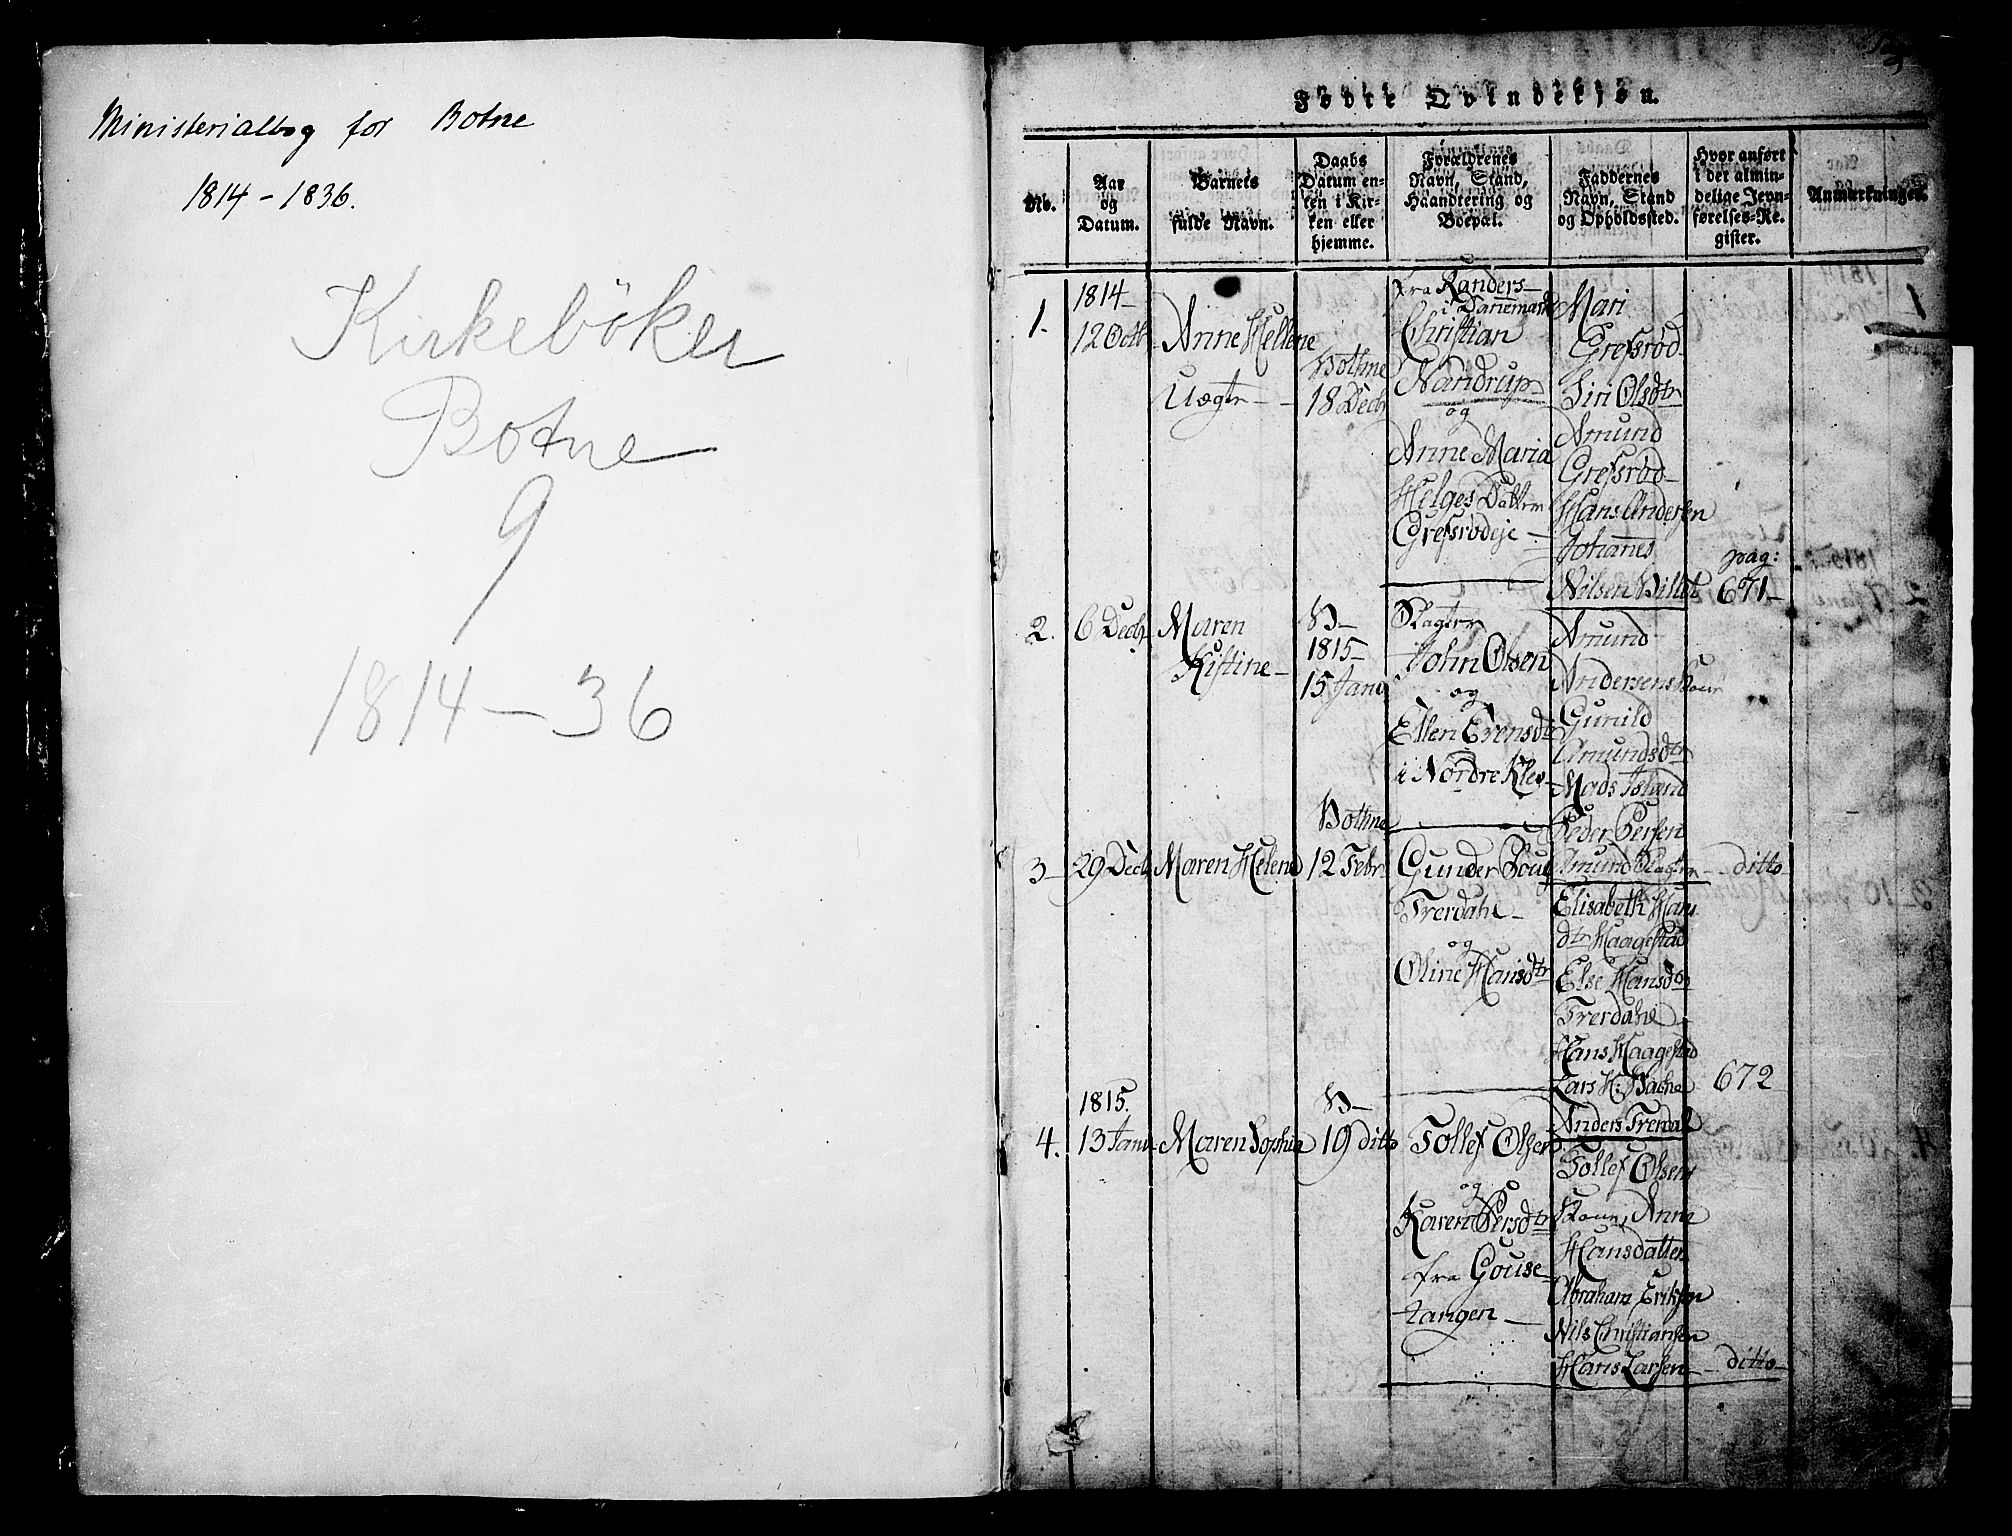 Ministerialbog for Botne
1814 - 1836.
Kirkebøker
Botne
9
1814 - 36
Fødte Qvindekjøn.
No.
Aar
og
Datum.
Barnets
fulde Navn.
Daabs
Datum en-
ten i Kir-
ken eller
hjemme.
Forældrenes
Navn, Stand,
Haandtering og
Boepæl.
Faddernes
Navn, Stand
og Opholdssted.
Hvor anført
i det almin-
delige Jevn-
førelses-Re-
gister.
Anmærkninger.
1.
1814-
12 Octb
Anne Hellene
Uægte -
Bothne
18 Decbr
fra Randers-
i Danemark
Christian
Nandrup
og
Anne Maria
Helges Datter
Grefsrødeje -
Mari
Grefsrød
Siri Olsdtr
Amund
Grefsrød-
Hans Andersen
Johannes
Nilsen
pag:
671-
2.
6 Decbr
Maren
Kistine-
B-
1815-
15 Janu
John Olsen
og
Ellen Evensdtr
i Nordre Klev-
Amund
Andersen
Gunild
Amundsdtr
Mads Island
Peder Persen
Amund
ditto
3-
29 Decb
Maren Helene
Bothne
12 Febr
Gunder
Trerdahl-
og
Oline Hansdtr
Elisabeth Hans
dtr Haagestad
Else Hansdtr
Trerdahl-
Hans Haagestad
Lars H: Bache
Anders Trerdal
672
4.
1815.
13 Janu
Maren Sophia
B-
19 ditto
Tollef Olsen
og
Karen Persdtr
fra Gouse-
tangen -
Tollef Olsen
Anne
Hansdatter
Abraham Eriksen
Nils Christiansen
Hans Larsen
ditto